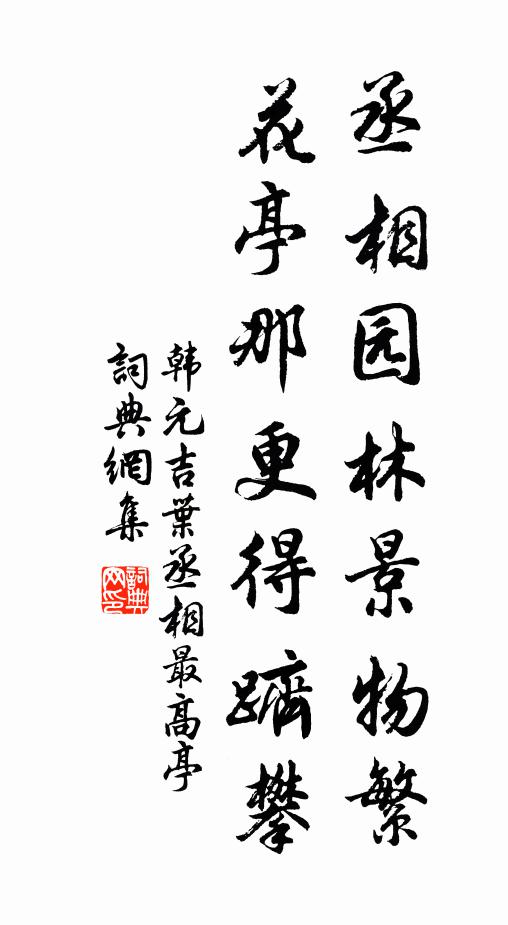 丞相园林景物繁
花亭那更得躋攀
韩元吉葉丞相最高亭
詞典網集
詞典網印